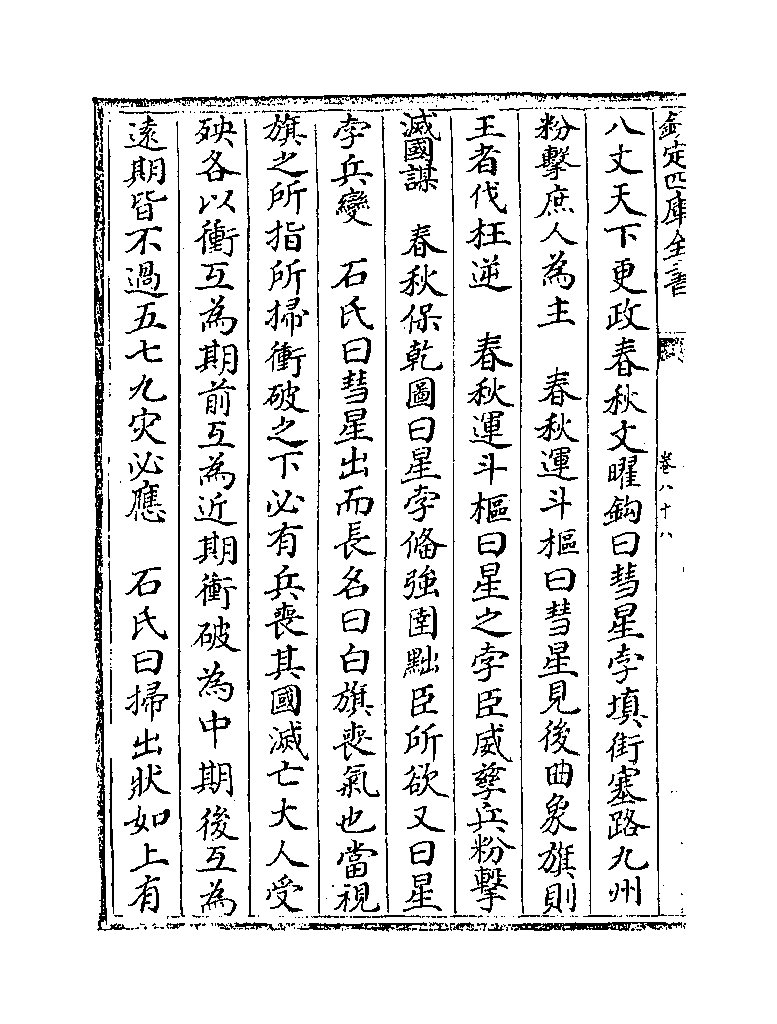 欽定四庫全書
卷八十八
八丈天下更政春秋文曜鈎曰彗星孛填街塞路九州
粉擊庶人為主　春秋運斗樞曰彗星見後曲象旗則
王者伐枉逆　春秋運斗樞曰星之孛臣威孽兵粉擊
滅國謀　春秋保乾圖曰星孛偹強圉黜臣所欲又曰星
孛兵變　石氏曰彗星出而長名曰白旗喪氣也當視
旗之所指所掃衝破之下必有兵喪其國滅亡大人受
殃各以衝互為期前互為近期衝破為中期後互為
逺期皆不過五七九灾必應　石氏曰掃出狀如上有